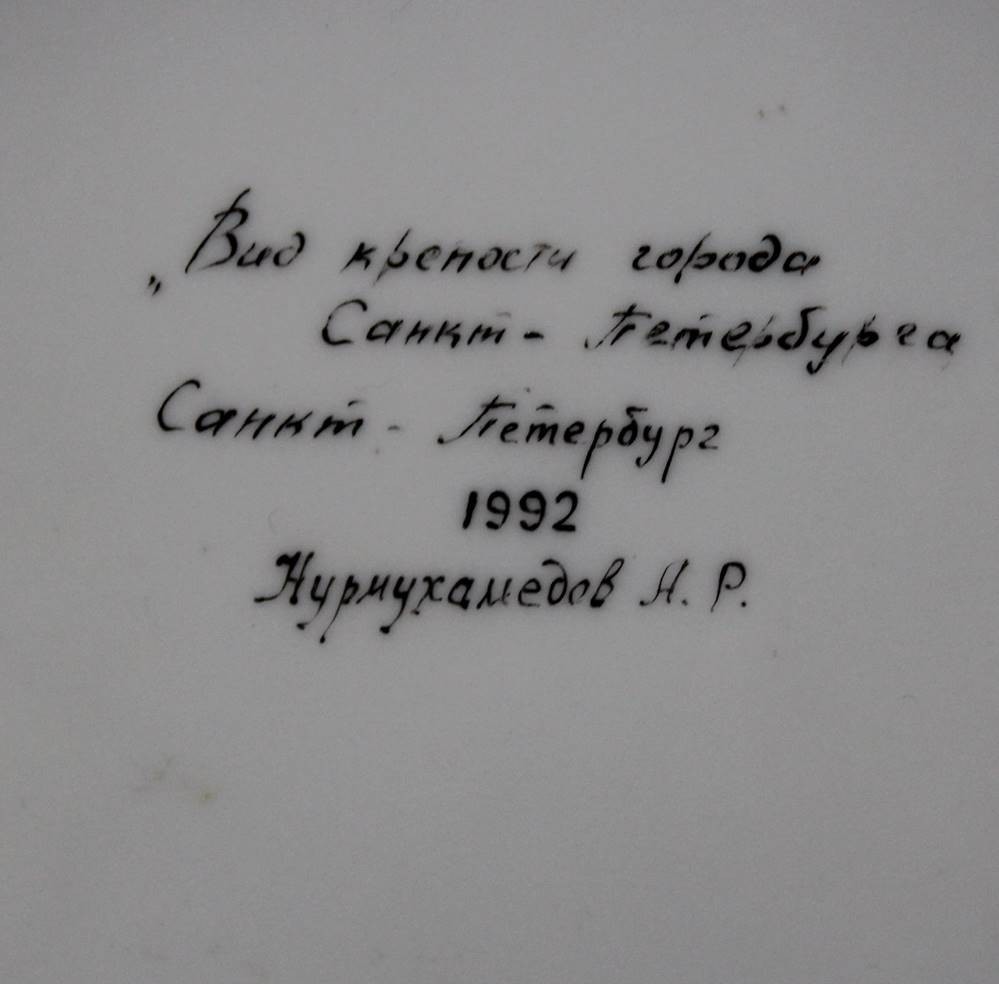 „Вид крепости города
Санкт-Петербурга
Санкт-Петербург
1992
Нурмухамедов Н. Р.